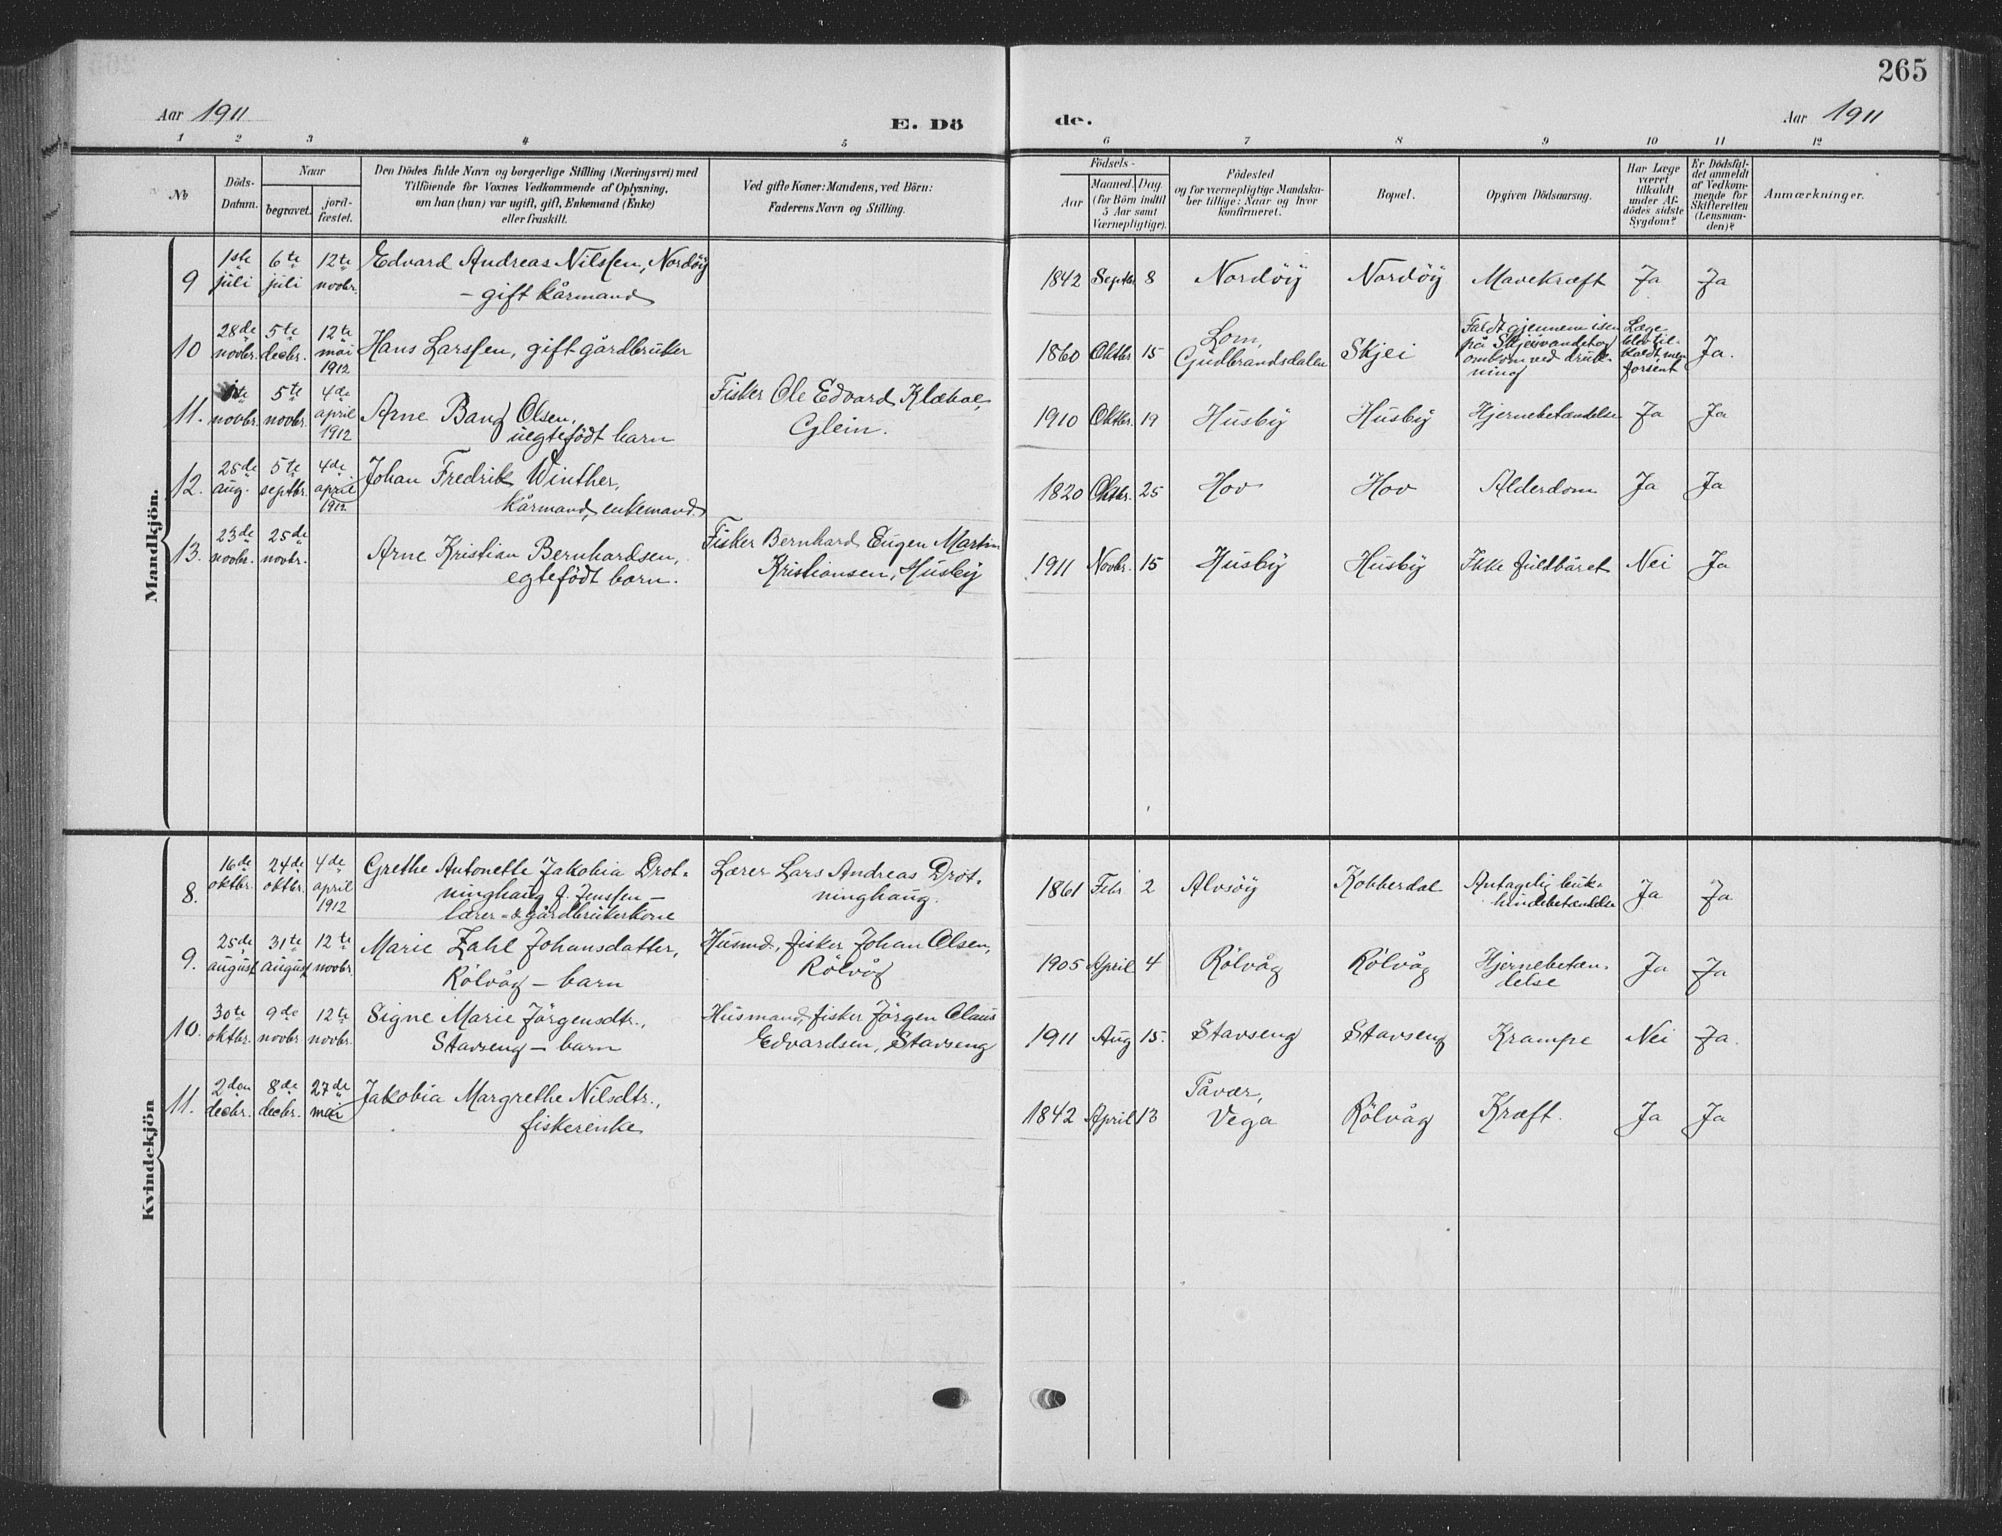 265
Aar 1911 E. Dö de. Aar 1911
1 2 3 4 5 6 7 8 9 10 11 12
No
Döds-
Datum.
Naar
begravet.
jord-
fæstet.
Den Dödes fulde Navn og borgerlige Stilling (Næringsvei) med
Tilföiende for Voxnes Vedkommende af Oplysning,
om han (hun) var ugift, gift, Enkemand (Enke)
eller fraskilt.
Ved gifte Koner: Mandens, ved Börn:
Faderens Navn og Stilling.
Födsels-
Aar
Maaned. Dag.
(for Börn indtil
5 Aar samt
Værnepligtige).
Födested
og for værnepligtige Mandska-
ber tillige: Naar og hvor
konfirmeret.
Bopæl.
Opgiven Dödsaarsag.
Har Læge
været
tilkaldt
under Af-
dödes sidste
Sygdom?
Er Dödsfal-
det anmeldt
af Vedkom-
mende for
Skifteretten
(Lensman-
den)?
Anmærkninger.
Mandkjön.
9
1ste
juli
6te
juli
12te
novbr.
Edvard Andreas Nilssen, Nordöy
- gift kårmand
1842 Septbr 8 Nordöy Nordöy Mavekræft Ja Ja
10
28de
novbr.
5te
decbr.
12te
mai
1912
Hans Larssen, gift gårdbruker
1860 Oktbr 15
Lom,
Gudbrandsdalen
Skjei
Faldt gjennem isen
på Skjeivandet og
omkom ved druk-
ning
Læge
blev til-
kaldt, men
forsent
Ja.
11.
novbr.
5te
novbr.
4de
april
1912
Arne Bang Olsen,
uegtefödt barn
Fisker Ole Edvard Klæboe,
Glein.
1910 Oktbr. 19 Husby Husby Hjernebetændelse Ja Ja
12.
25de
aug.
5te
septbr.
4de
april
1912
Johan Fredrik Winther,
kårmand, enkemand.
1820 Oktbr. 25 Hov Hov Alderdom Ja Ja
13.
23de
novbr.
25de
novbr.
Arne Kristian Bernhardsen,
egtefödt barn.
Fisker Bernhard Eugen Martin
Kristiansen, Husby
1911 Novbr. 15 Husby Husby Ikke fuldbåret Nei Ja
Kvindekjön
8.
16de
oktbr.
24de
oktbr.
4de
april
1912
Grethe Antonette Jakobia Drot-
ninghaug f. Jenssen -
lærer- & gårdbrukerkone
Lærer Lars Andreas Drot-
ninghaug.
1861 Febr 2 Alvsöy Kobberdal
Antagelig buk-
hindebetændelse
Ja Ja
9.
25de
august
31te
august
12te
novbr.
Marie Zahl Johansdatter,
Rölvåg - barn
Husmd., fisker Johan Olsen,
Rölvåg
1905 April 4 Rölvåg Rölvåg
Hjernebetæn-
delse
Ja Ja
10.
30te
oktbr.
9de
novbr
12te
novbr.
Signe Marie Jörgensdtr.,
Stavseng - barn
Husmand, fisker Jörgen Claus
Edvardsen, Stavseng
1911 Aug 15. Stavseng Stavseng Krampe Nei Ja.
11.
2den
decbr.
8de
decbr.
27de
mai
Jakobia Margrethe Nilsdtr.,
fiskerenke
1842 April 13
Tåvær,
Vega
Rölvåg Kræft. Ja Ja